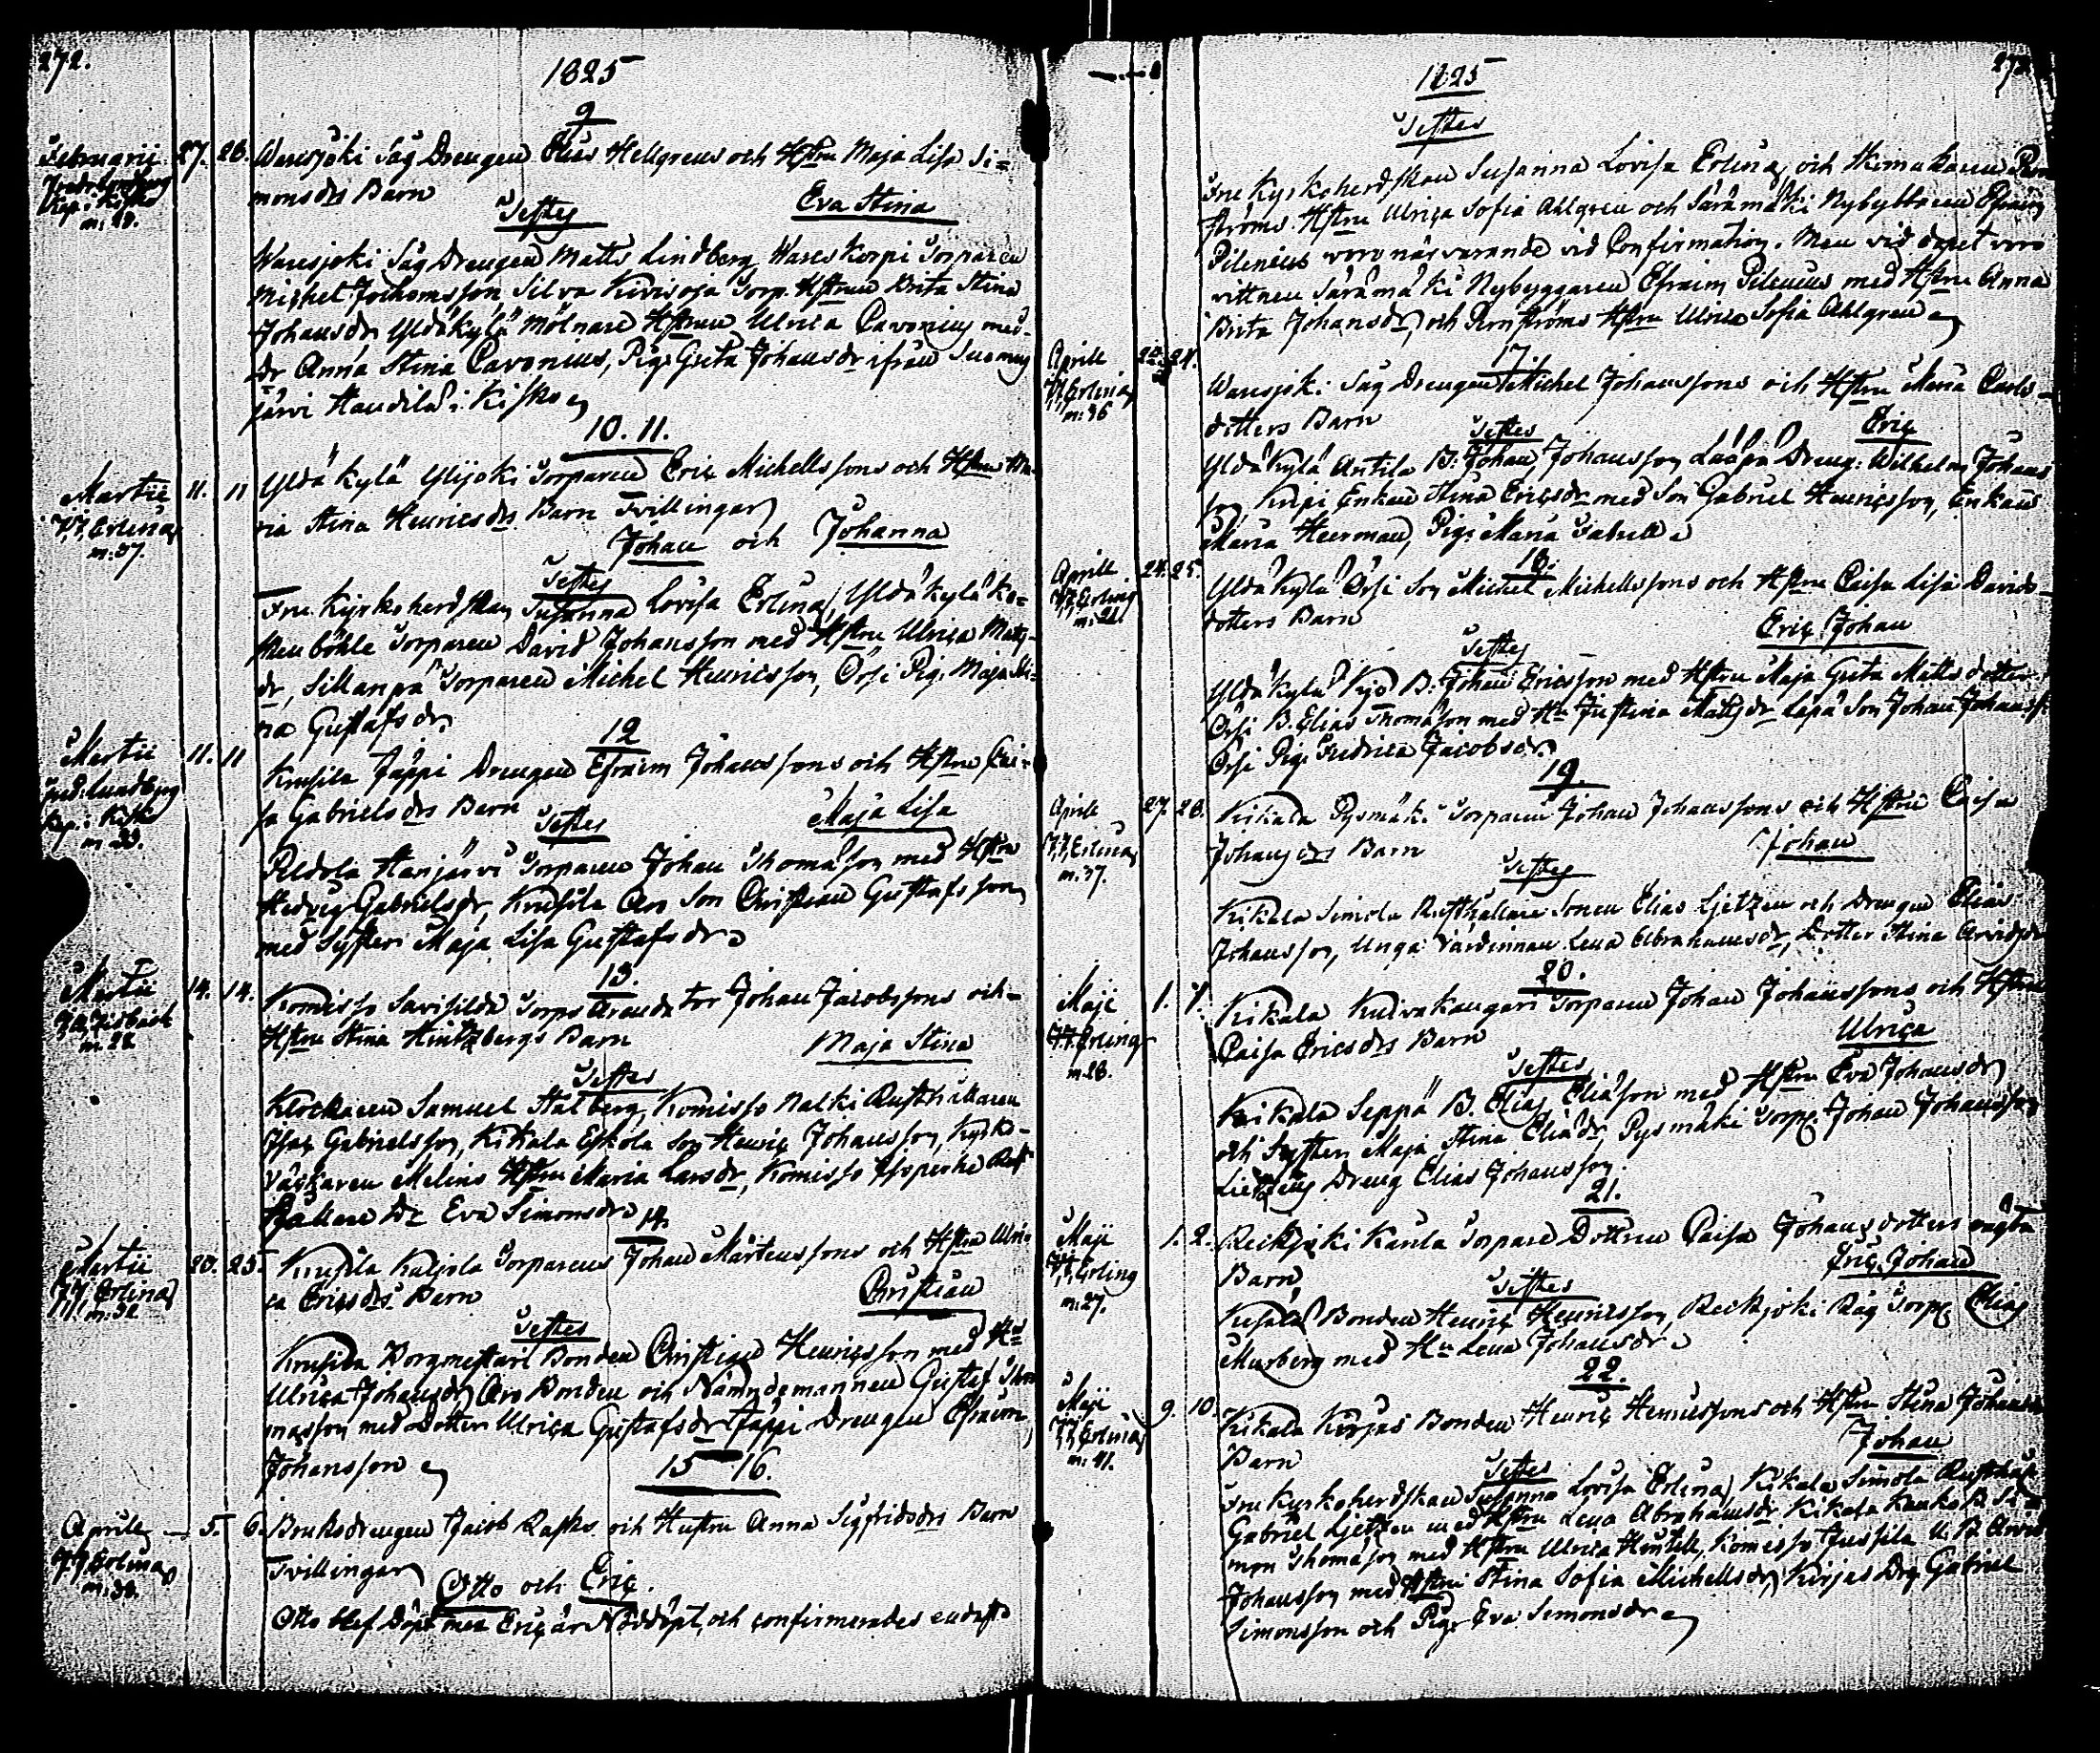 272.
1825
9
Februarii 27. 28. Waresjöki Såg Drengen Elias Hellgrens och Hstru Maja Lisa Si=
m: 28. monsdrs Barn Eva Stina
Testes
Waresjoki Såg Drengen Matts Lindberg, Wareskorpi Torparen
Michel Jochomsson, Silva Kivisoja Torp. Hstrun Brita Stina
Johansdr, Yldäkylä Mölnare Hstrun Ulrica Cavonius med
dr Anna Stina Cavonius, Pig: Greta Johansdr ifrån Suomus
järvi Handila i Kisko
10. 11.
Martii 11. 11 Yldäkylä Ylijoki Torparen Eric Michelssons och Hstru Ma
J.J. Erlin m: 37. ria Stina Henricsdrs Barn Tvillingar
Johan och Johanna
Testes
Fru Kyrkoherdskan Susanna Lovisa Erlina, Yldäkylä Ko=
Torparen David Johansson med Hstru Ulrica Matts
dr, Sillanpä Torparen Michel Henricsson, Örsi Pig: Maja Sti=
na Gustafsdr
12
Martii 11. 11 Krusila Jäppi Drengen Efraim Johanssons och Hstru Cai=
sa Gabrielsdrs Barn Maja Lisa
Testes
Peldola Harjärvi Torparen Johan Thomasson med Hstru
Hedvig Gabrielsdr, Krusila Aro Son Christian Gustafsson
med Syster Maja Lisa Gustafsdr
13.
Martii 14. 14. Komisso Savisilda Torps Arendator Johan Jacobssons och
m. 28 Hstru Stina Hintzbergs Barn Maja Stina
Testes
Klockaren Samuel Stålberg, Komisso Nalki Rusthållaren
Isac Gabrielsson, Kikala Eskola Son Henric Johansson, Kyrko=
väcktaren Melins Hstru Maria Larsdr, Komisso Rust
hållare Dr Eva Simonsdr
14.
Martii 20. 25. Krusila Kaljola Torparens Johan Mårtenssons och Hstru Ulri=
ca Ericsdrs Barn Christian
Testes
Krusila Borgmestari Bonden Christian Henricsson med Hu
Ulrica Johansdr, Aro Bonden och Nämndemannen Gustaf Tho
masson med Dotter Ulrica Gustafsdr, Jäppi Drengen Efraim
Johansson
15 16.
Aprill 5. 6. Bruksdrengen Jacob Rasks och Hustru Anna Sigfridsdrs Barn
J.J. Erlin m: 32. Tvillingar
Otto och Eric.
Otto blef Döpt men Eric är Nöddöpt, och confirmerades endast
1825
Testes
Fru Kyrkoherdskan Susanna Lovisa Erlina, och
ströms Hstru Ulrica Sofia Ahlgren och Säramäki Nybyggaren Efraim
Pilenius voro närvarande vid Confirmation. Men vid dopet voro
vittnen Säramäki Nybyggaren Efraim Pilenius med Hstru Anna
Brita Johansdr, och Hstru Ulrica Sofia Ahlgren
17.
Aprill 24. Waresjoki Såg Drengen Michel Johanssons och Hstru Maria Carls=
m: 36 dotters Barn Eric
Testes
Yldäkylä Antila B: Johan Johansson, Laapa Dreng: Wilhelm Johans
son, Knipi Enkan Stina Ericsdr med Son Gabriel Henricsson, Enkan
Maria Heerman, Pig: Maria Gabrielsdr
18.
Aprill 24. 25. Yldäkylä Örsi Son Michel Michelssons och Hstru Caisa Lisa Davids=
dotters Barn Eric Johan
Testes
Yldäkylä B: Johan Ericsson med Hstru Maja Greta Mattsdotter
Örsi B. Elias Thomasson med Hu Justina Mattsdr, Son Johan Johansson
Örsi Pig: Fredrica Jacobsdr
19.
Aprill 27. 28. Kikala Pysmäki Torparen Johan Johanssons och Hstru Caisa
m: 37. Johansdrs Barn Johan
Testes
Kikala Simola Rusthållare Sonen Elias Ljetzen och Drengen Elias
Johansson, Unga Värdinnan Lena Abrahamsdr, Dotter Stina Arvidsdr
20.
Maji 1. 1. Kikala Kuivakangari Torparen Johan Johanssons och Hstru
m. 28. Caisa Ericsdrs Barn Ulrica
Testes
Kikala Seppä B. Elias Eliasson med Hstru Eva Johansdr
och Syster Maja Stina Eliaedr, Pysmäki Torp: Johan Johansson
Lietzens Dreng Elias Johansson.
21.
Maji 1. 2. Reckijoki Kaula Torpare Dottren Caisa Johansdotters oägta
m: 27. Barn Eric Johan
Testes
Bonden Henric Henricsson, Reckijoki Råg Torp: Elias
Murberg med Hu Lena Johansdr
22.
Maji 9. 10. Kikala Kirjas Bonden Henric Henricssons och Hstru Stina Johansdrs
m: 41. Barn Johan
Testes
Fru Kyrkoherdskan Susanna Lovisa Erlina, Kikala Simola Rusthål
Gabriel Ljetzen med Hstru Lena Abrahamsdr, Kikala Kauko B. Si=
mon Thomasson med Hstru Ulrica Hintell, Komisso Jussila U. B. Arvid
Johansson med Hstru Stina Sofia Michelsdr, Kirjas Dg: Gabriel
Simonsson och Pig: Eva Simonsdr